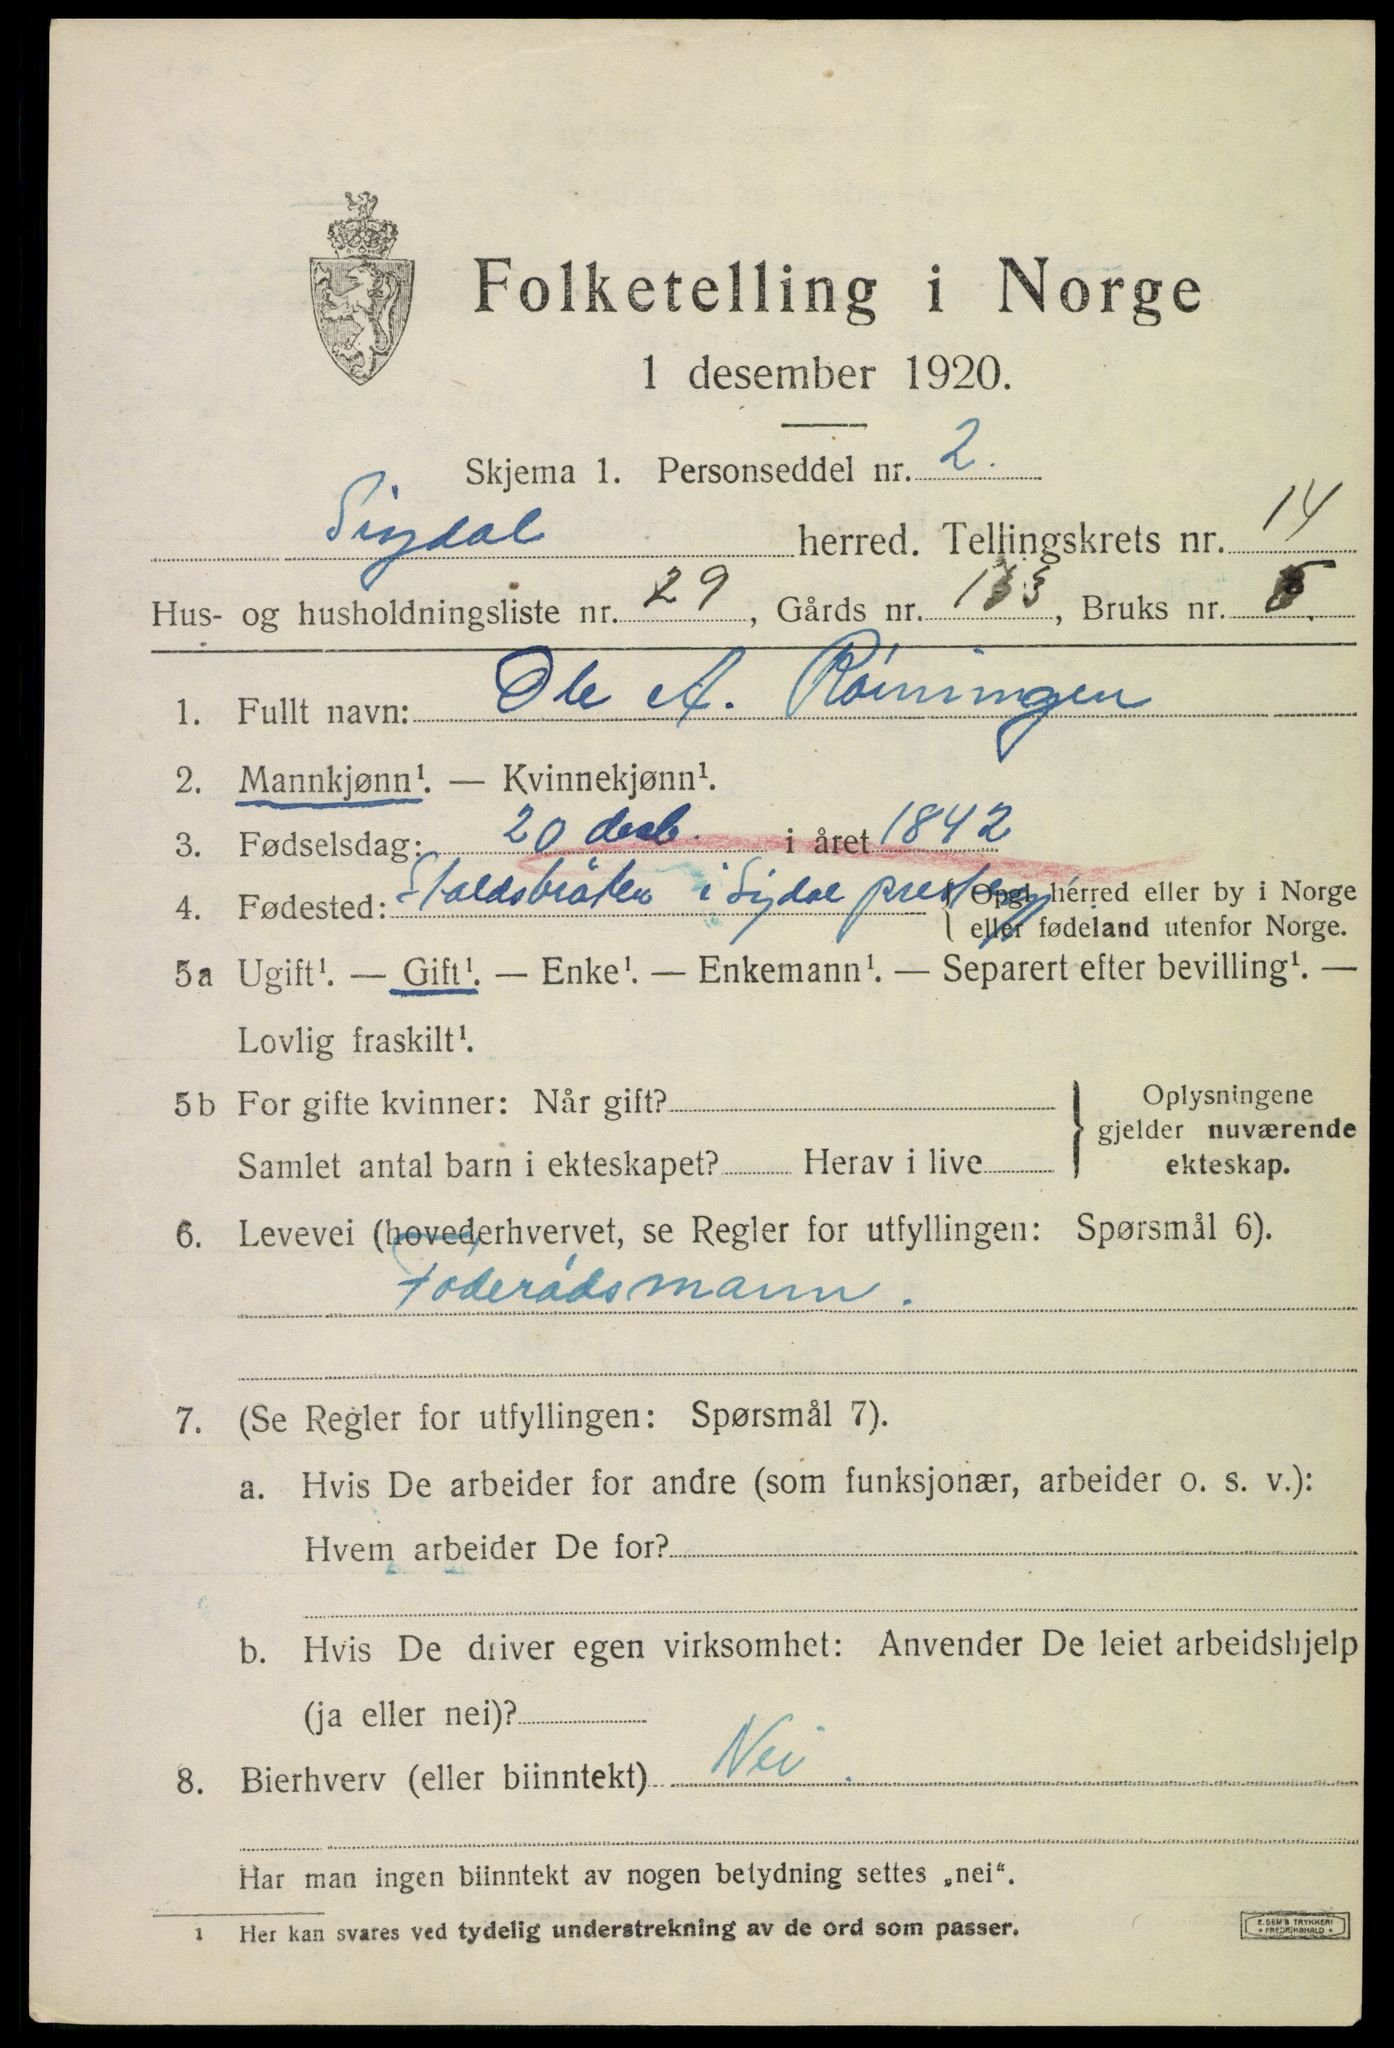 Folketelling i Norge
1 desember 1920.
Skjema 1. Personseddel nr. 2.
Sigdal herred. Tellingskrets nr. 14
Hus- og husholdningsliste nr. 29, Gårds nr. , Bruks nr.
1. Fullt navn: Ole A. Röiningen
2. Mannkjønn¹. — Kvinnekjønn¹.
3. Fødselsdag: 20 desb. i året 1842
4. Fødested: Staldsbråten i Sigdal presteg {Opgi herred eller by i Norge
eller fødeland utenfor Norge.
5a Ugift¹. — Gift¹. — Enke¹. — Enkemann¹. — Separert efter bevilling¹. —
Lovlig fraskilt¹.
5b For gifte kvinner: Når gift?
Samlet antal barn i ekteskapet? Herav i live
Oplysningene
gjelder nuværende
ekteskap.
6. Levevei (hovederhvervet, se Regler for utfyllingen: Spørsmål 6).
Föderådsmann.
7. (Se Regler for utfyllingen: Spørsmål 7).
a. Hvis De arbeider for andre (som funksjonær, arbeider o. s. v.):
Hvem arbeider De for?
b. Hvis De driver egen virksomhet: Anvender De leiet arbeidshjelp
(ja eller nei)?
8. Bierhverv (eller biinntekt) Nei.
Har man ingen biinntekt av nogen betydning settes „nei“.
1 Her kan svares ved tydelig understrekning av de ord som passer.
E. SEM'S TRYKKERI
* FREDRIKSHALD *